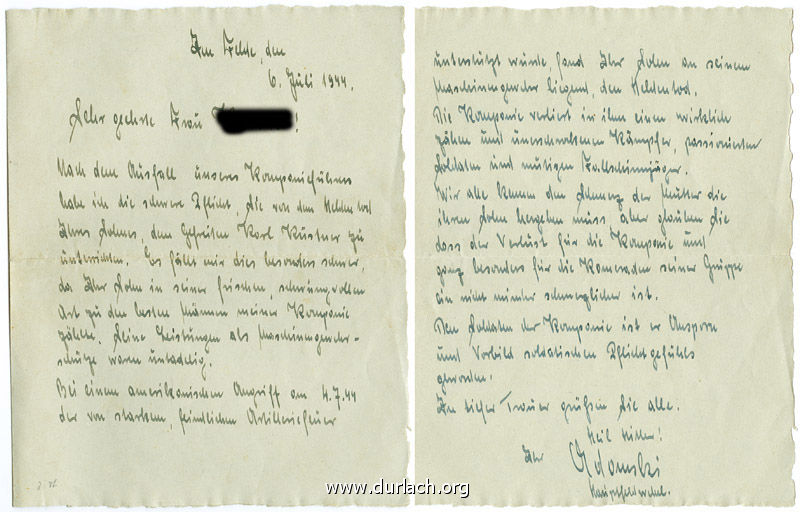 Im Felde, den
6. Juli 1944.
Sehr geehrte Frau !
Nach dem Ausfall unseres Kompanieführers
habe ich die schwere Pflicht, Sie von dem Heldentod
Ihres Sohnes, dem Gefreiten Karl Küstner zu
unterrichten. Es fällt mir dies besonders schwer,
da Ihr Sohn in seiner frischen, schwungvollen
Art zu den besten Männern meiner Kompanie
zählte. Seine Leistungen als Maschinengewehr-
schütze waren untadelig.
Bei einem amerikanischen Angriff am 4.7.44
der von starkem, feindlichem Artilleriefeuer
unterstützt wurde, fand Ihr Sohn an seinem
Maschinengewehr liegend, den Heldentod.
Die Kompanie verliert in ihm einen wirklich
zähen und unerschrockenen Kämpfer, passionierten
Soldaten und mutigen Fallschirmjäger.
Wir alle kennen den Schmerz der Mutter die
ihren Sohn hergeben muss aber glauben Sie
dass der Verlust für die Kompanie und
ganz besonders für die Kameraden seiner Gruppe
ein nicht minder schmerzlicher ist.
Den Soldaten der Kompanie ist er Ansporn
und Vorbild soldatischen Pflichtgefühles
geworden.
In tiefer Trauer grüßen Sie alle.
Heil Hitler!
Ihr Adomski
Hauptfeldwebel.
www.durlach.org